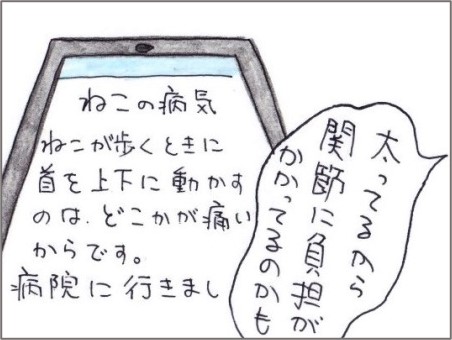 ねこの病気
ねこが歩くときに
首を上下に動かす
のは、どこかが痛い
からです。
病院に行きまし
太ってるから
関節に負担が
かかってるのかも